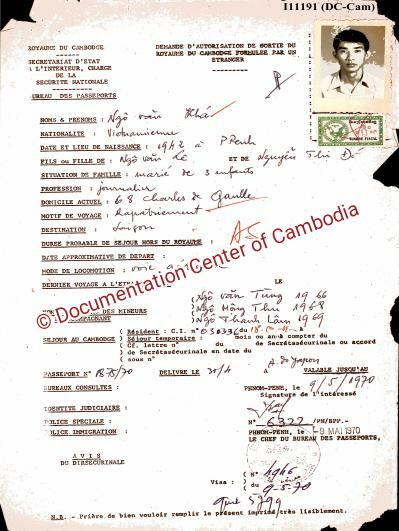 I11191 (DC-Cam)
ROYAUME DU CAMBODGE
SECRETARIAT D'ETAT
A L'INTERIEUR, CHARGE
DE LA
SECURITE NATIONALE
BUREAU DES PASSEPORTS
DEMANDE D'AUTORISATION DE SORTIE DU
ROYAUME DU CAMBODGE FORMULEE PAR UN
ETRANGER
NOMS & PRENOMS : Ngô văn Khá
NATIONALITE : Vietnamienne
DATE ET LIEU DE NAISSANCE : 1942 à P.Penh
FILS ou FILLE DE : Ngô văn Lê ET DE Nguyễn Thi
SITUATION DE FAMILLE : marié de 3 enfants
PROFESSION : journalier
DOMICILE ACTUEL : 68 Charles de Gaulle
MOTIF DE VOYAGE : Rapatriement
DESTINATION : Saigon
DUREE PROBABLE DE SEJOUR HORS DU ROYAUME : AS
DATE APPROXIMATIVE DE DEPART :
MODE DE LOCOMOTION : voie
DERNIER VOYAGE A L'ETR LE
© Documentation Center of Cambodia
DES MINEURS
COMPAGNANT
Ngô Văn Tùng 1966
Ngô Hồng Thu 1968
Ngô Thanh Lâm 1969
SEJOUR AU CAMBODGE
Résident : C.I. n° 030336 du
Séjour temporaire : mois ou an à compter du
Cf. lettre n° du de Secrétaséurinale ou accord
de Secrétaséurinale en date du
sous n°
PASSEPORT N° 1875/70 DELIVRE LE 30/4 VALABLE JUSQU'AU
BUREAUX CONSULTES :
PHNOM-PENH, le 9/5/1970
Signature de l'intéressé
IDENTITE JUDICIAIRE :
POLICE SPECIALE :
POLICE IMMIGRATION :
N° 6322 /PN/BPP.-
PHNOM-PENH, le 9 MAI 1970
LE CHEF DU BUREAU DES PASSEPORTS,
A V I S
DU DIRSECURINALE
Visa : N° 4946
du 9-5-70
5799
N.B. - Prière de bien vouloir remplir le présent imprimé très lisiblement.